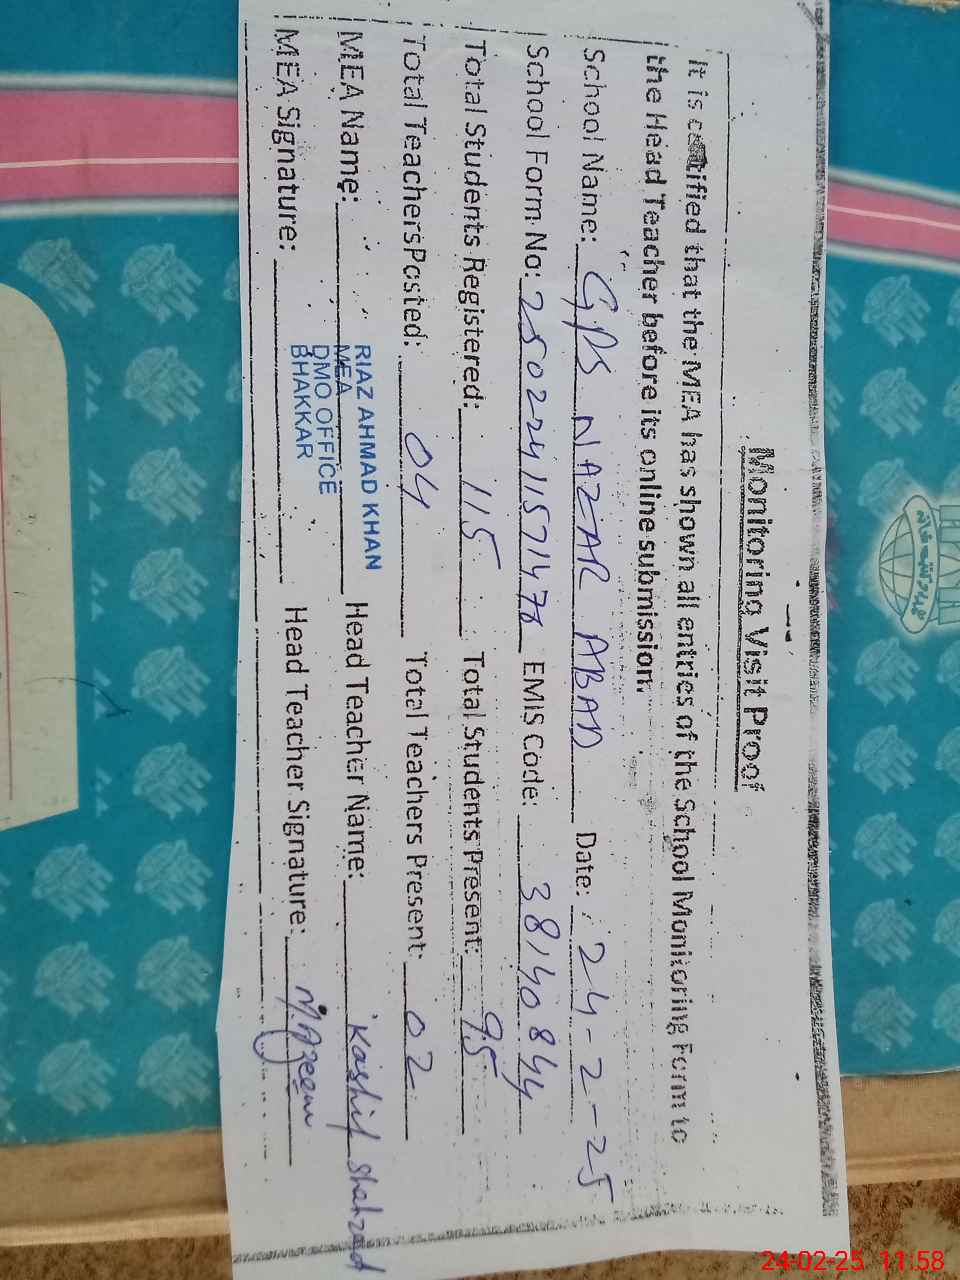 Monitoring Visit Proof
It is certified that the MEA has shown all entries of the School Monitoring Form to
the Head Teacher before its online submission.
School Name: GPS NAZAR ABAD Date: 24-2-25
School Form No: 250224115714 EMIS Code: 38140844
Total Students Registered: 115 Total Students Present: 95
Total Teachers Posted: 04 Total Teachers Present 02
MEA Name: RIAZ AHMAD KHAN Head Teacher Name: Kashif Shahzad
MEA
MEA Signature: DMO OFFICE Head Teacher Signature: M.Azeem
BHAKKAR
24-02-25 11:58